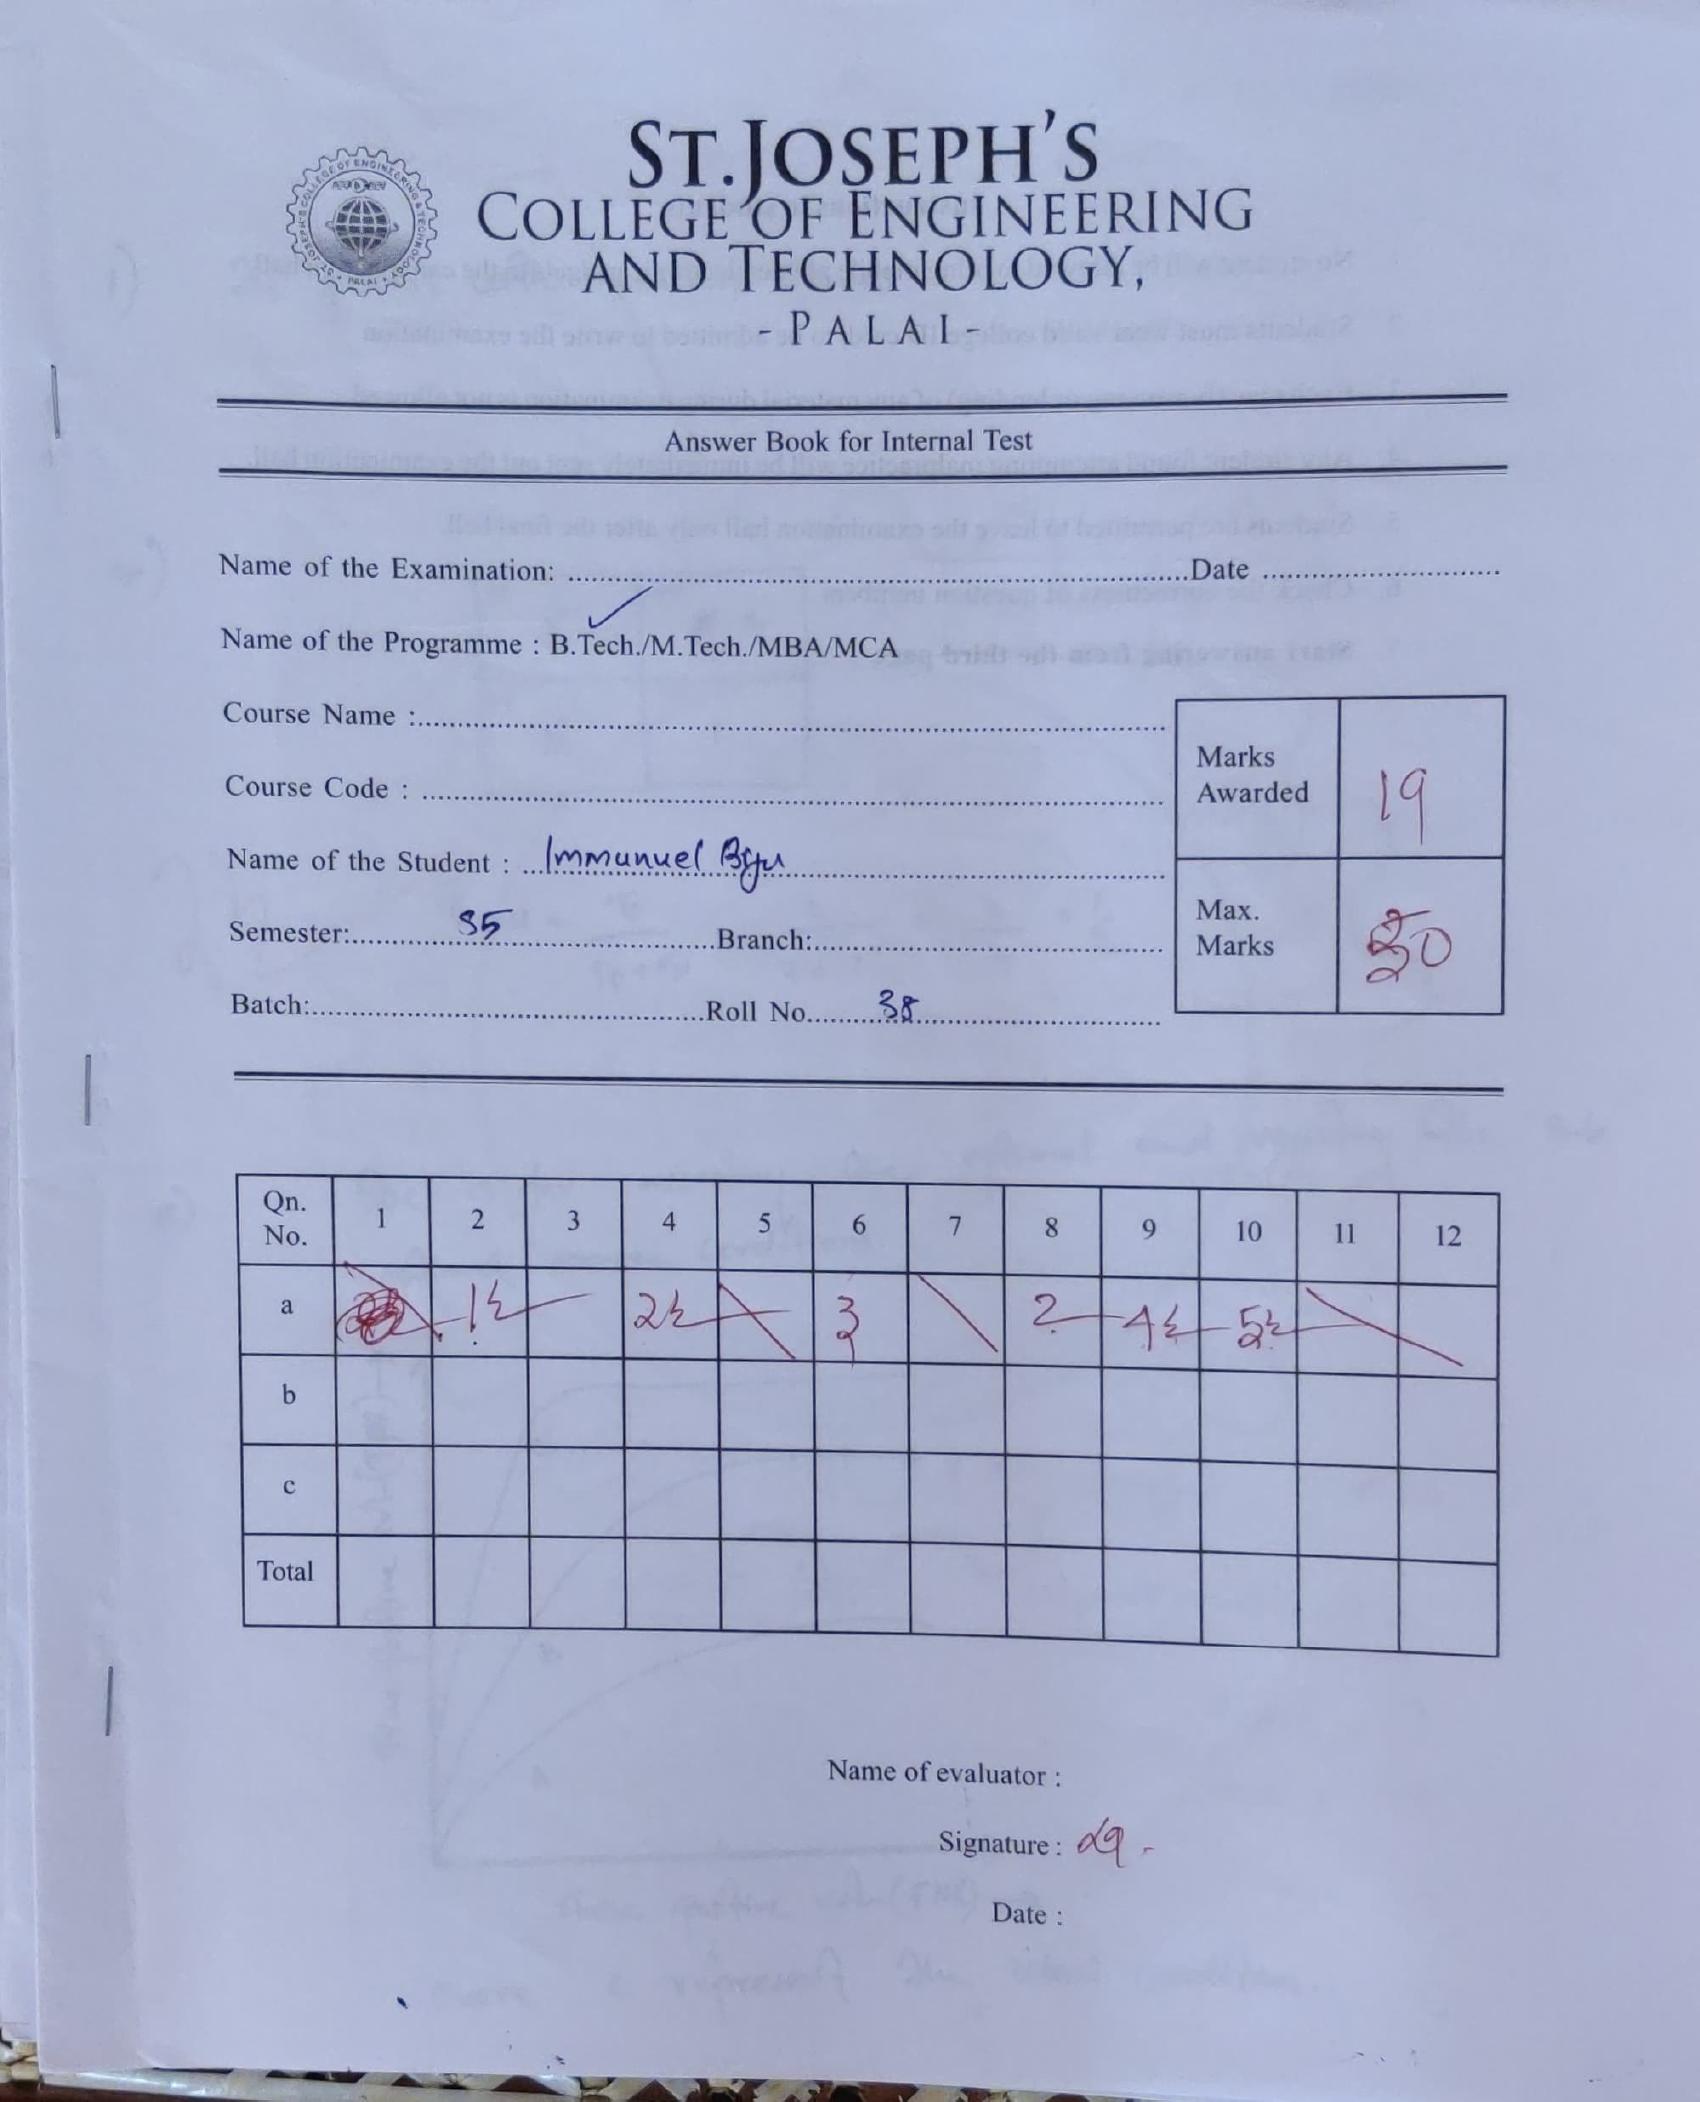 ST.JOSEPH'S
COLLEGE OF ENGINEERING
AND TECHNOLOGY,
- PALAI -
Answer Book for Internal Test
Name of the Examination: ........ Date ........
Name of the Programme : B.Tech./M.Tech./MBA/MCA
Course Name :........
Course Code : ........
Name of the Student : ... Immanuel Biju
Semester:.... S5 ....Branch:........
Batch:........Roll No.... 38
Marks Awarded 19
Max. Marks 50
Qn. No. 1 2 3 4 5 6 7 8 9 10 11 12
a 1½ 2½ 3 2 4½ 5½
b
c
Total
Name of evaluator :
Signature :
Date :